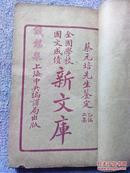 蔡元培先生鉴定
乙编
二集
全國學校
國文成績
新文庫
上海中央編譯局出版